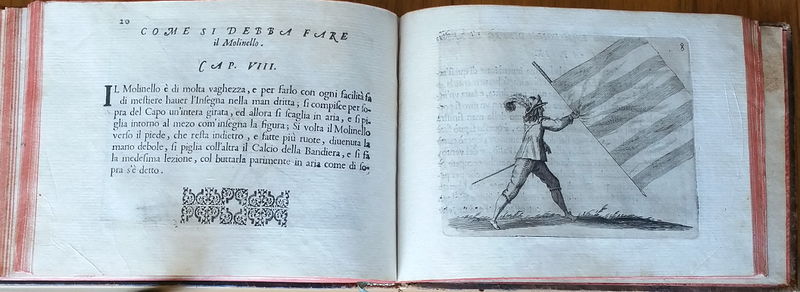 20
COME SI DEBBA FARE
il Molinello.
CAP. VIII.
IL Molinello è di molta vaghezza, e per farlo con ogni facilità fa
di mestiere hauer l'Insegna nella man dritta; si compisce per so-
pra del Capo un'intera girata, ed allora si scaglia in aria, e si pi-
glia intorno al mezo com'insegna la figura; Si volta il Molinello
verso il piede, che resta indietro, e fatte più ruote, diuenuta la
mano debole, si piglia coll'altra il Calcio della Bandiera, e si fà
la medesima lezione, col buttarla parimente in aria come di so-
pra s'è detto.
8